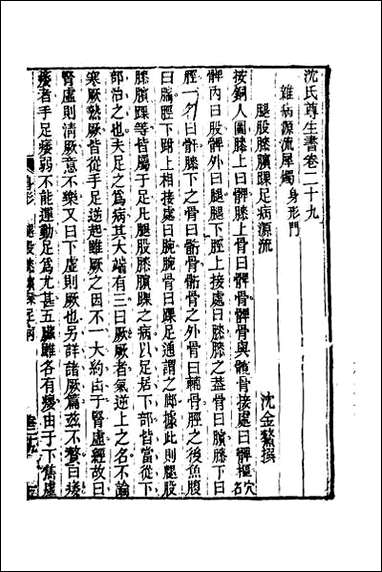 沈氏尊生書卷二十九
雜病源流犀燭 身形門
腿股膝臏踝足病源流
沈金鰲撰
按銅人圖膝上曰骨曰髀骨髀骨與髖骨接處曰髀樞穴名
髀內曰股髀外曰腿腿下脛上接處曰膝膝之蓋骨曰臏膝下曰
脛一名曰骹膝下之骨曰骺骨骺骨之外骨曰輔骨脛之後魚腹
曰腨脛下跗上相接處曰腕腕骨曰踝足通謂之腳據此則腿股
膝臏踝等皆屬于足凡腿股膝臏踝之病以足括下部皆當從下
部治之也夫足之為病其大端有三曰厥厥者氣逆上之名不論
寒厥熱厥皆從手足逆起雖厥之因不一大約由于腎虛經故曰
腎虛則清厥意不樂又曰下虛則厥也另詳諸厥篇茲不贅曰痿
痿者手足痿弱不能運動足為尤甚五臟雖各有變由于下舊虛
身形 腿股膝臏踝足病